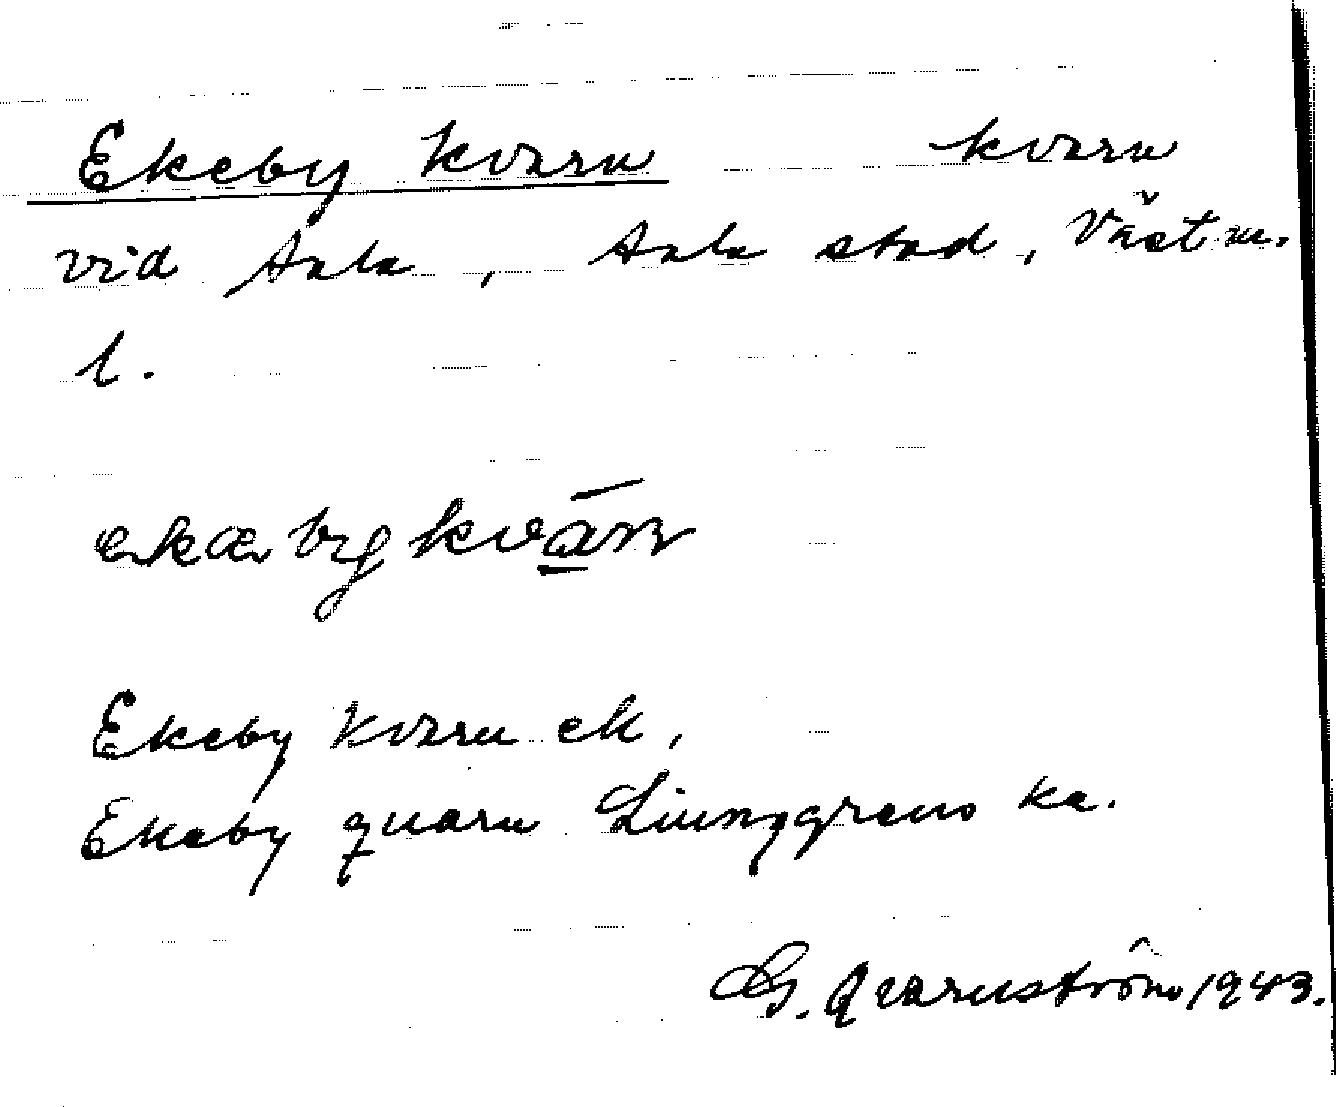 Ekeby kvarn kvarn
vid Sala, Sala stad, Västm.
l.
ekæbykván
Ekeby kvarn ek,
Ekeby quarn Liunggrens ka.
G. Qvarnström 1943.